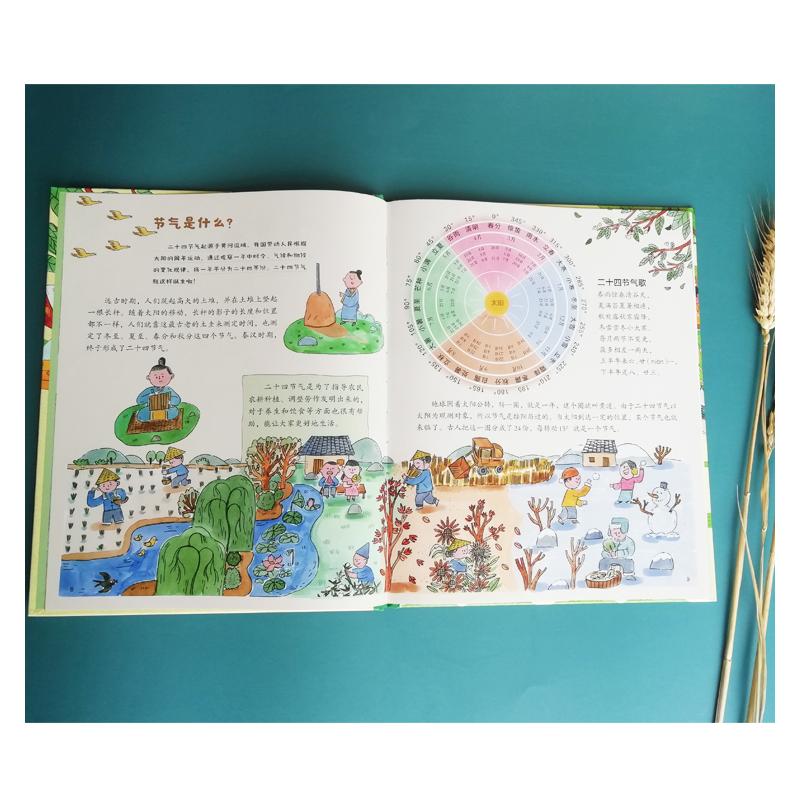 节气是什么？
二十四节气起源于黄河流域，我国劳动人民根据
太阳的周年运动，通过观察一年中时令、气候和物候
的变化规律，将一年平分为二十四等份，二十四节气
就这样诞生啦！
远古时期，人们筑起高大的土堆，并在土堆上竖起
一根长杆。随着太阳的移动，长杆的影子的长度和位置
都不一样，人们就靠这最古老的土圭来测定时间，也测
定了冬至、夏至、春分和秋分这四个节气。秦汉时期，
终于形成了二十四节气。
二十四节气是为了指导农民
农耕种植、调整劳作发明出来的，
对于养生和饮食等方面也很有帮
助，能让大家更好地生活。
太阳
0° 春分
15° 清明
30° 谷雨
45° 立夏
60° 小满
75° 芒种
90° 夏至
105° 小暑
120° 大暑
135° 立秋
150° 处暑
165° 白露
180° 秋分
195° 寒露
210° 霜降
225° 立冬
240° 小雪
255° 大雪
270° 冬至
285° 小寒
300° 大寒
315° 立春
330° 雨水
345° 惊蛰
二十四节气歌
春雨惊春清谷天，
夏满芒夏暑相连，
秋处露秋寒霜降，
冬雪雪冬小大寒。
每月两节不变更，
最多相差一两天，
上半年来六、廿（niàn）一，
下半年是八、廿三。
地球围着太阳公转，转一圈，就是一年，这个圈就叫黄道。由于二十四节气以
太阳为观测对象，所以节气是按阳历过的。当太阳到达一定的位置，某个节气也就
来临了。古人把这一圈分成了24份，每转动15°就是一个节气。